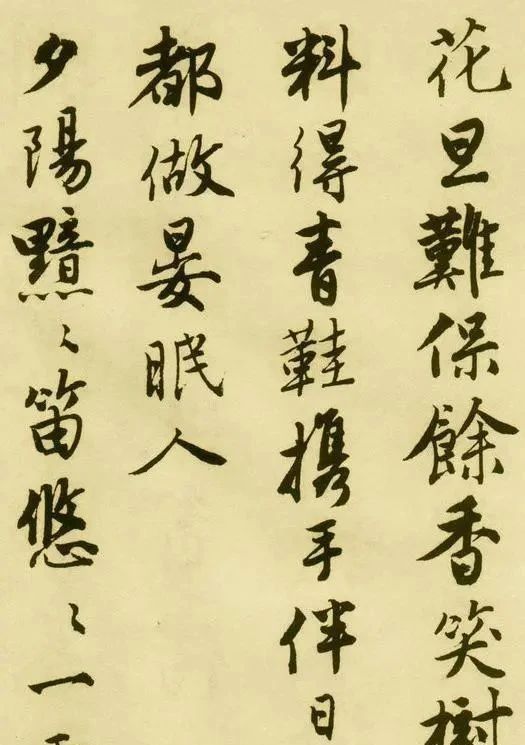 花旦難保餘香笑樹
料得青鞋攜手伴日
都做晏眠人
夕陽黯〻笛悠〻一